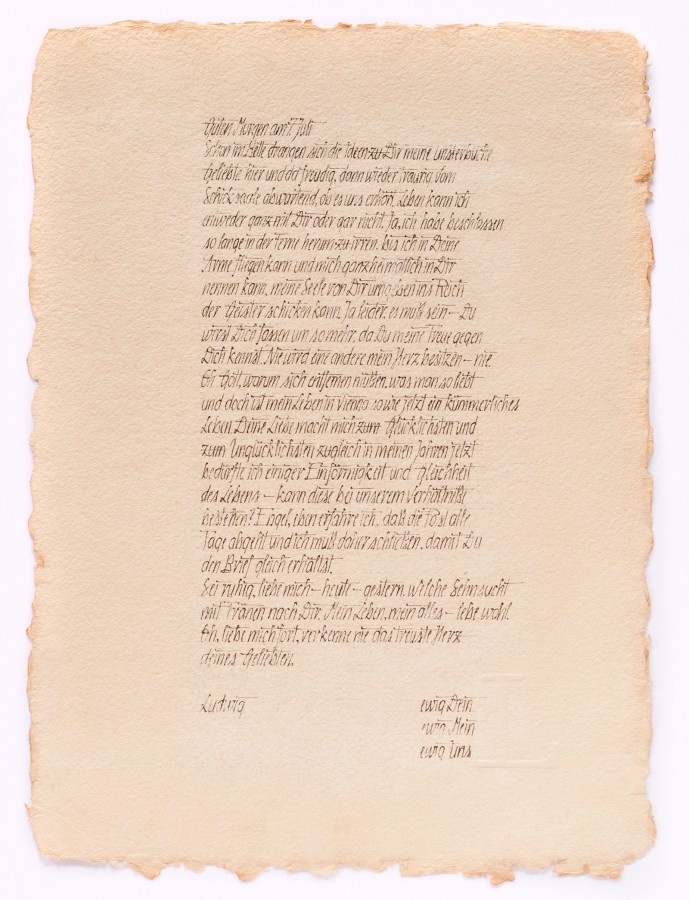 Guten Morgen am 7. Juli
Schon im Bette drangen sich die Ideen zu Dir meine unsterbliche
Geliebte hier und da freudig, dann wieder traurig vom
Schicksaale abwartend, ob es uns erhört, Leben kann ich
entweder ganz mit Dir oder gar nicht. Ja, ich habe beschlossen
so lange in der Ferne herum zu irren, bis ich in Deine
Arme fliegen kann und mich ganz heimatlich in Dir
nennen kann, meine Seele von Dir umgeben ins Reich
der Geister schicken kann. Ja leider, es muß sein – Du
wirst Dich fassen um so mehr, da Du meine Treue gegen
Dich kennst. Nie wird eine andere mein Herz besitzen – nie.
Oh Gott, warum sich entfernen müssen, was man so liebt
und doch ist mein Leben in Vienna so wie jetzt ein kümmerliches
Leben. Deine Liebe macht mich zum Glücklichsten und
zum Unglücklichsten zugleich in meinen Jahren jetzt
bedürfte ich einiger Einförmigkeit und Gleichheit
des Lebens – kann diese bei unserem Verhältniße
bestehen? Engel, eben erfahre ich, daß die Post alle
Tage abgeht und ich muß daher schließen, damit Du
den Brief gleich erhältst.
Sei ruhig, liebe mich – heute – gestern, welche Sehnsucht
mit Tränen nach Dir. Mein Leben, mein alles – lebe wohl.
Oh, liebe mich fort, verkenne nie das treuste Herz
deines Geliebten.
Ludwig
ewig Dein
ewig Mein
ewig Uns